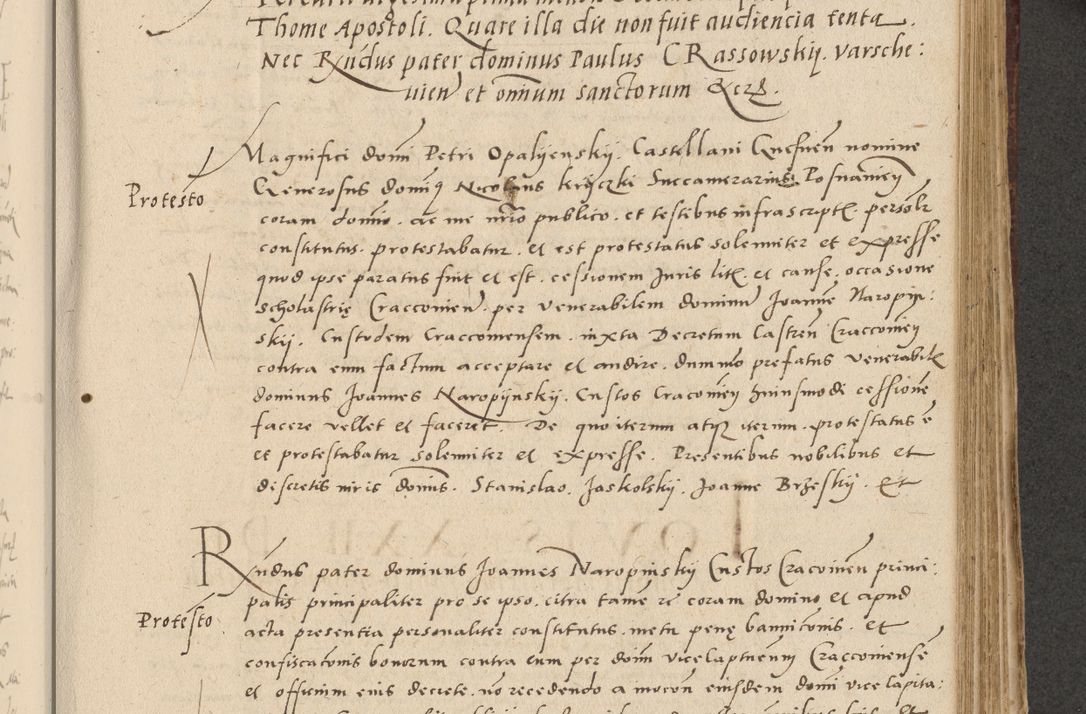 Thome Apostoli. Quare illa die non fuit audiencia tenta.
Nec Rndus pater dominus Paulus CRassowskij. varsche:
uien et omnium sanctorum
Magnifici domi Petri Opalijenskij. Castellani Gnesnen nomine
Protesto
Generosus domq Nicolaus kryczki Succamerarius Posnamen
coram domo. ac me nrio publico. et testibus infrascript. personlr
constitutus. protestabatur. et est protestatus solemniter et expresse
quod ipse paratus fuit et est. cessionem Juris lit. et cause. occasione
scholastrię Cracconien. per venerabilem dominum Joanne Naropin:
skij. Custodem Cracconensem. iuxta Decretum Castren Cracconien
contra eum factum acceptare et audire. dummo prefatus venerabil
dominus Joannes Naropijnskij. Custos Cracomen huiusmodi cessione
facere vellet et faceret. De quo iterum atq iterum. protestatus e
et protestabatur solemniter et expresse. Presentibus nobilibus et
discretis viris domis. Stanislao. Jaskolskij. Joanne Brzeskij. et
Rndus pater dominus Joannes Naropinskij Custos Cracomen princi:
palis principaliter pro se ipso. citra tame re coram domino et apud
Protesto
acta presentia personaliter constitutus. metu penę bannicois. et
confiscacois bonorum contra eum per dom vicecaptneum Cracconiense
et officium eius decrete. no recedendo a mocon eiusdem domi vicecapita: